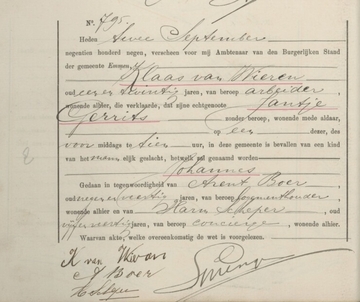 N°. 795.
Heden twee September
negentien honderd negen, verscheen voor mij Ambtenaar van den Burgerlijken Stand
der gemeente Emmen,
Klaas van Wieren
oud een en twintig jaren, van beroep arbeider
wonende alhier, die verklaarde, dat zijne echtgenoote Jantje
Gerrits zonder beroep, wonende mede aldaar,
op een dezer, des
voor middags te tien uur, in deze gemeente is bevallen van een kind
van het elijk geslacht, hetwelk zal genaamd worden
Johannes
Gedaan in tegenwoordigheid van Arent Boer
oud en veertig jaren, van beroep
wonende alhier en van Harm Schepers oud
veertig jaren, van beroep concierge, wonende alhier.
Waarvan akte, welke overeenkomstig de wet is voorgelezen.
K van Wieren
A Boer